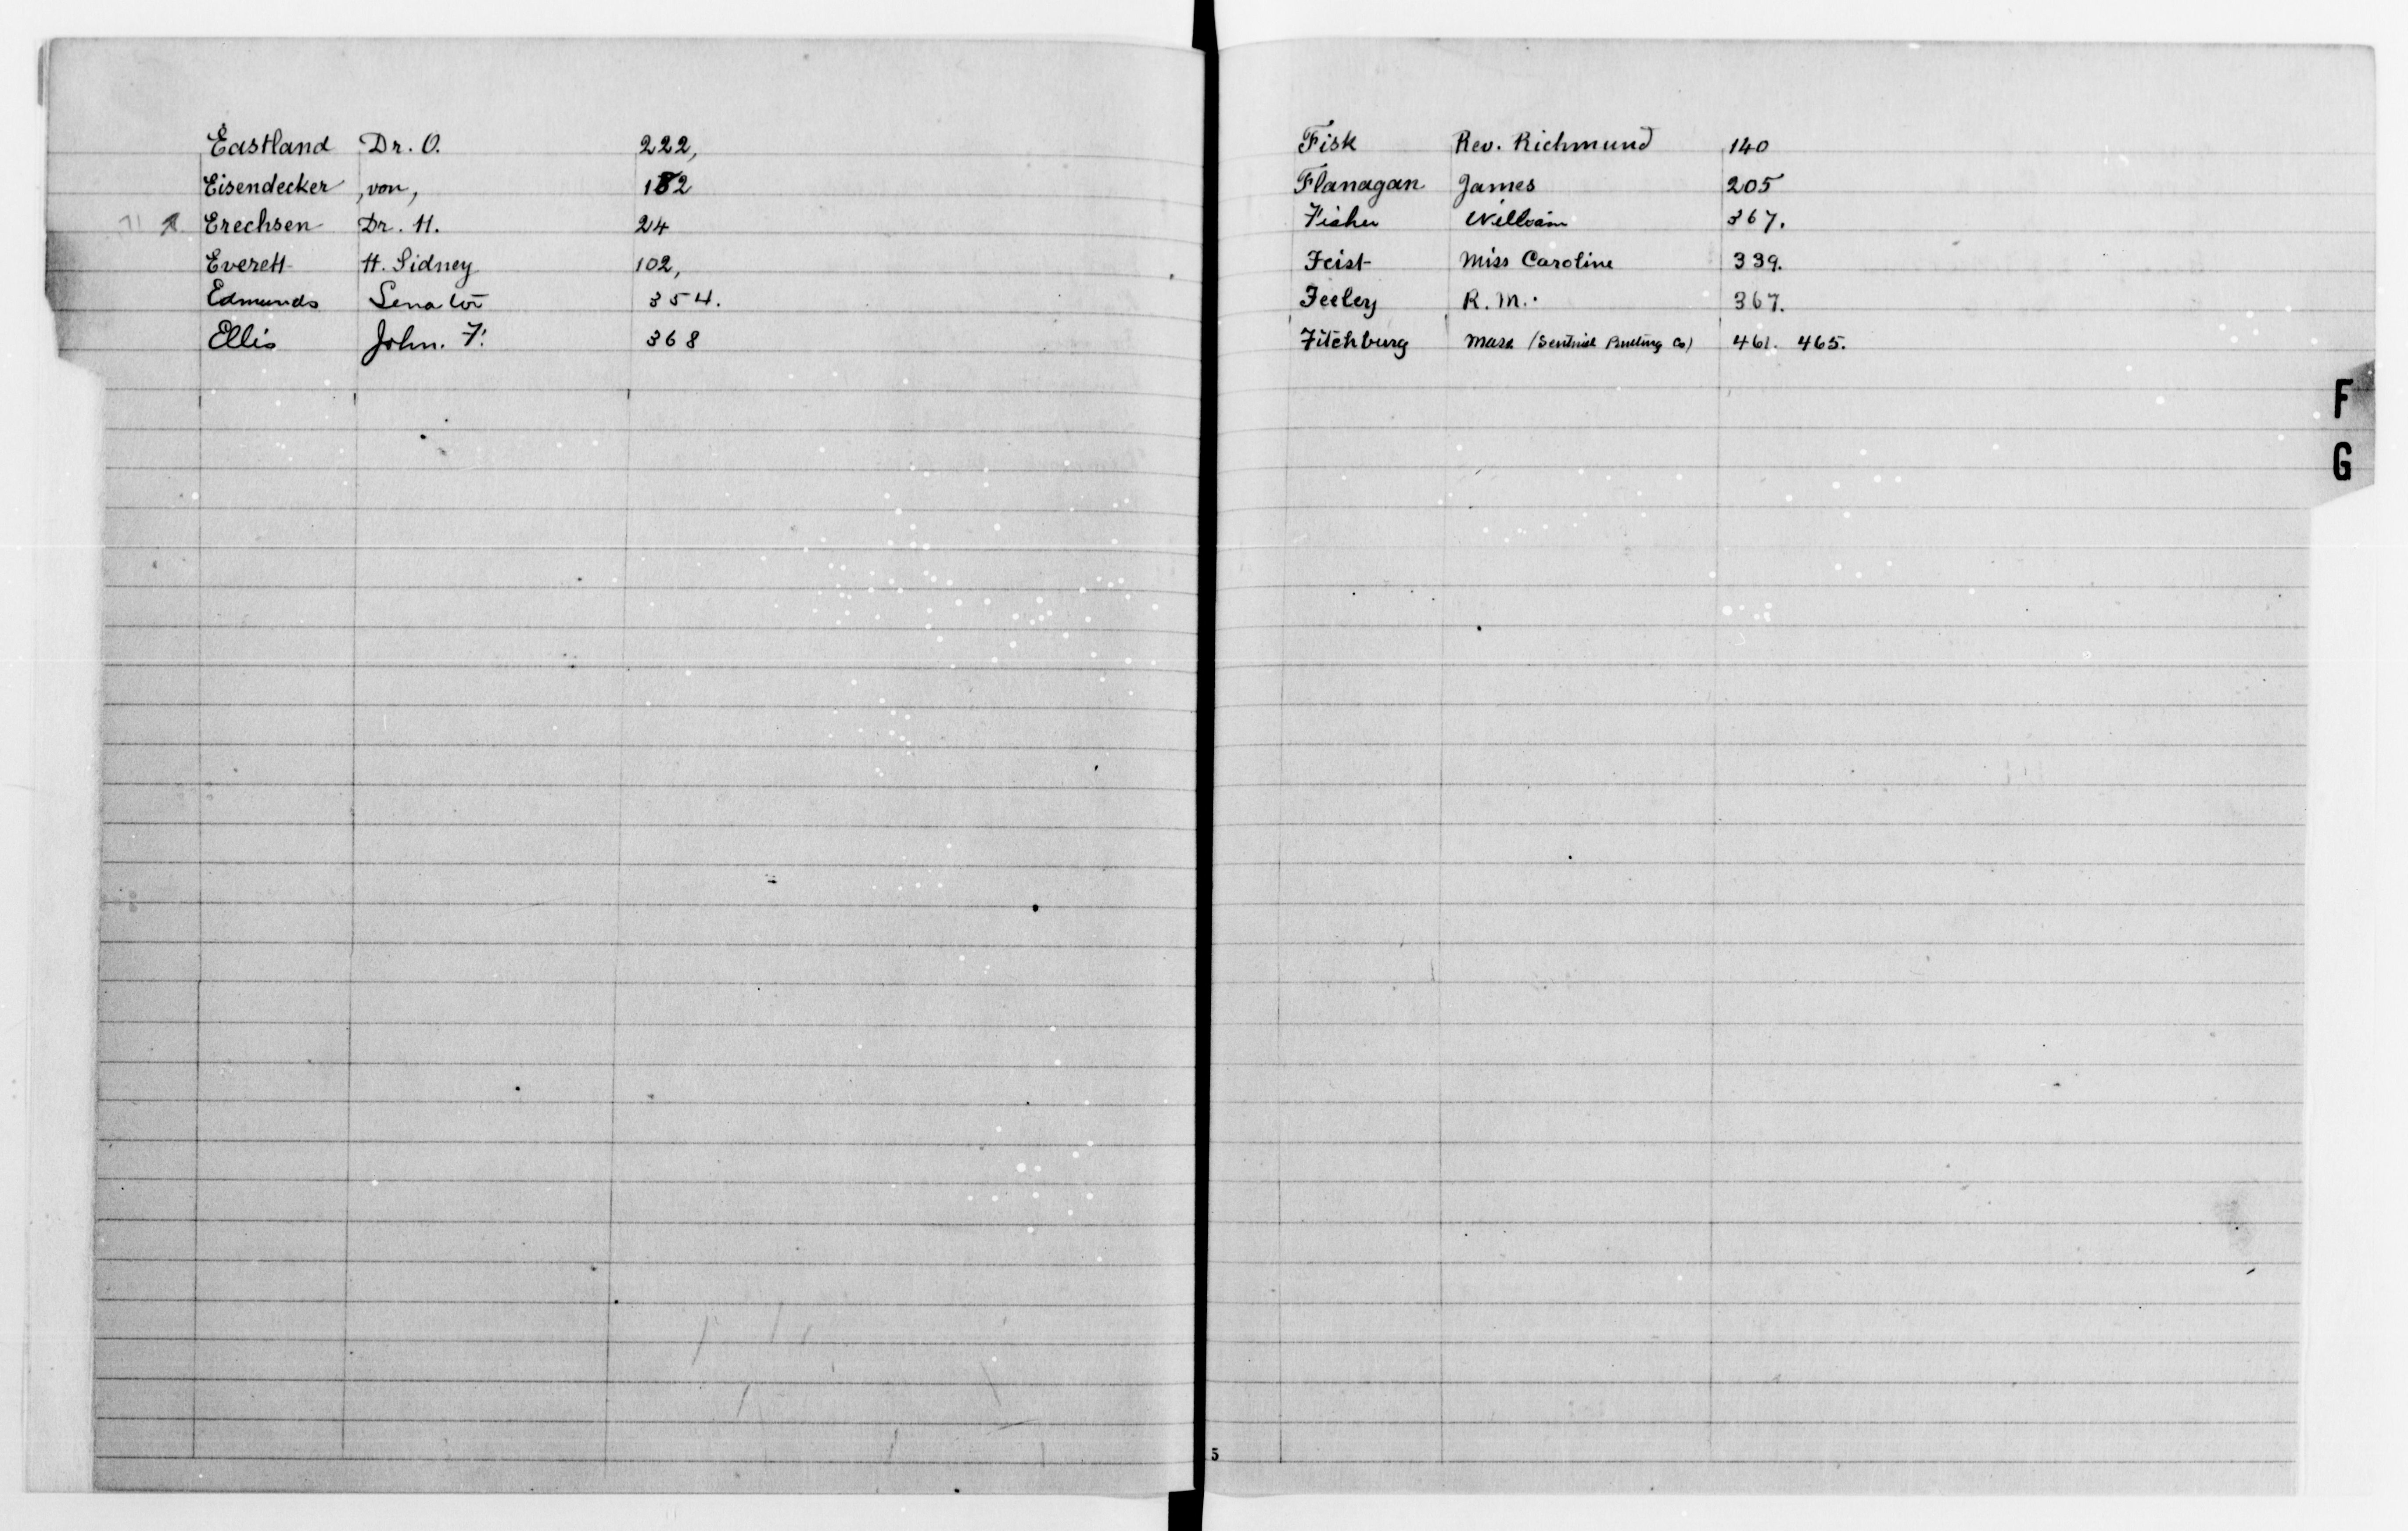 Eastland Dr. O. 222,
Eisendecker, von, 182
Erechsen Dr. H. 24
Everett H. Sidney 102,
Edmunds Senator 354.
Ellis John. F. 368
Fisk Rev. Richmund 140
Flanagan James 205
Fisher William 367.
Feist Miss Caroline 339.
Feeley R. M. 367.
Fitchburg Mass (Sentinel Printing Co) 461. 465.
F
G
5